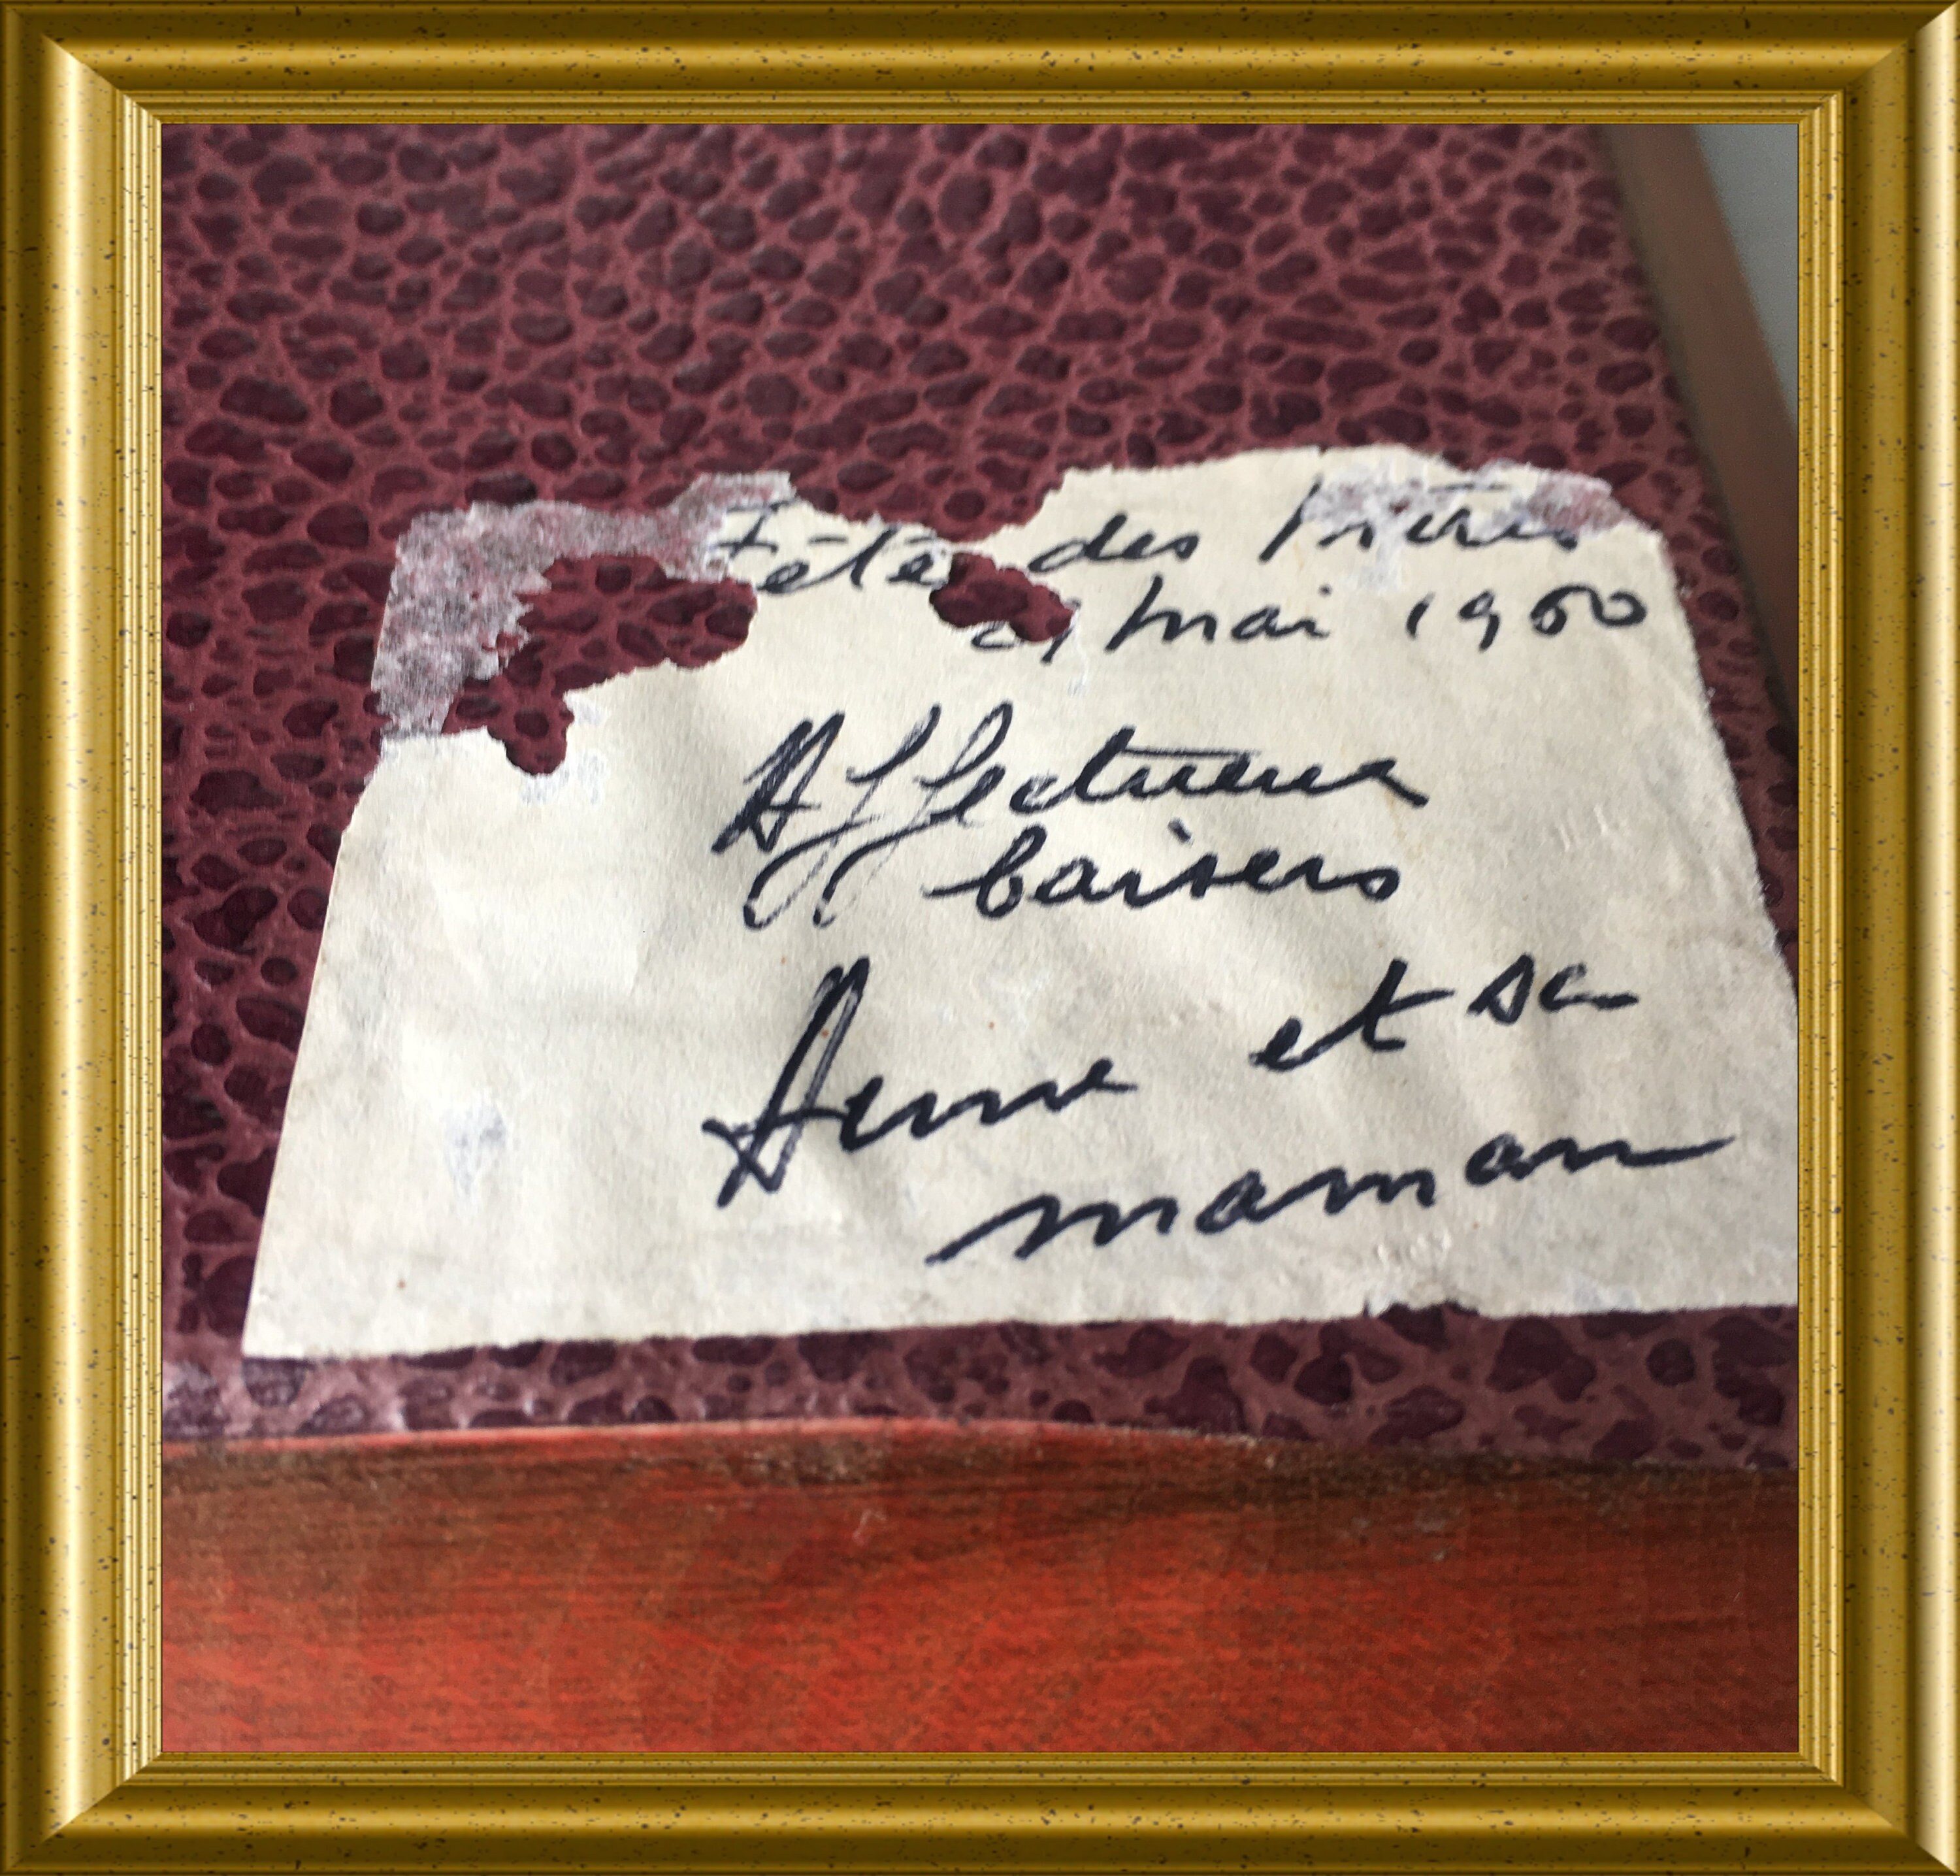 Fête des Mères
mai 1960
Affectueux
baisers
Anne et sa
maman